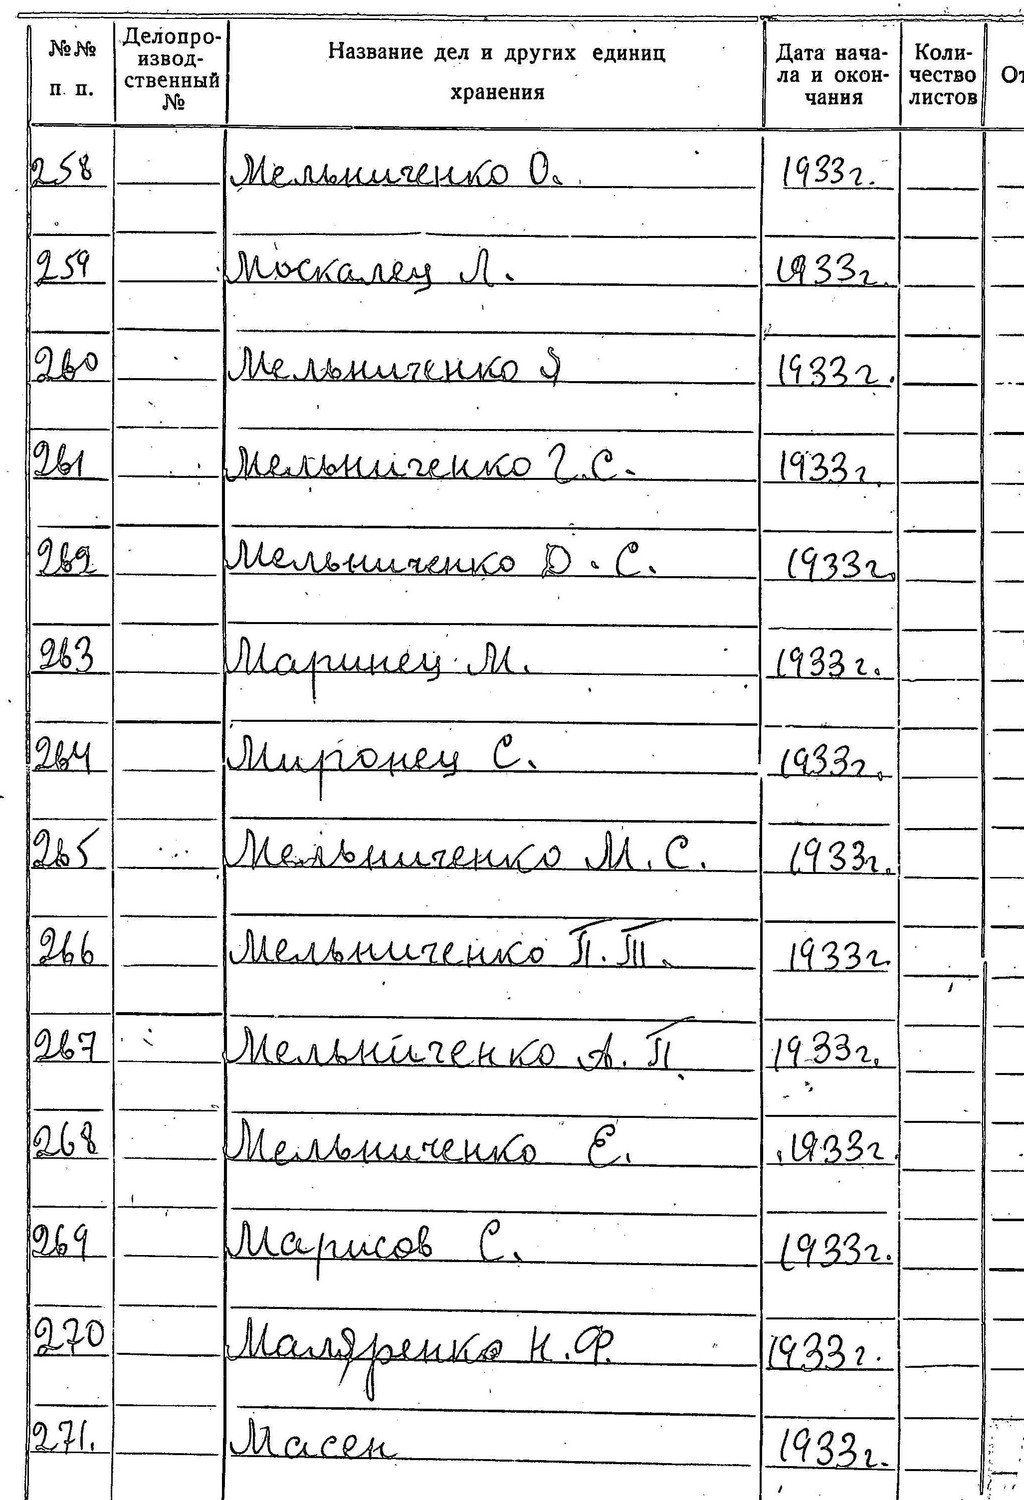 №№ п. п. Делопроизвод-ственный № Название дел и других единиц хранения Дата начала и окончания Количество листов От
258 Мельниченко О. 1933г.
259 Москалец Л. 1933г.
260 Мельниченко Я 1933г.
261 Мельниченко Г.С. 1933г.
262 Мельниченко D.С. 1933г.
263 Маринец М. 1933г.
264 Миронец С. 1933г.
265 Мельниченко М.С. 1933г.
266 Мельниченко П.Т. 1933г
267 Мельниченко А.П. 1933г.
268 Мельниченко Е. 1933г.
269 Марисов С. 1933г.
270 Маляренко Н.Ф. 1933г.
271. Масен 1933г.